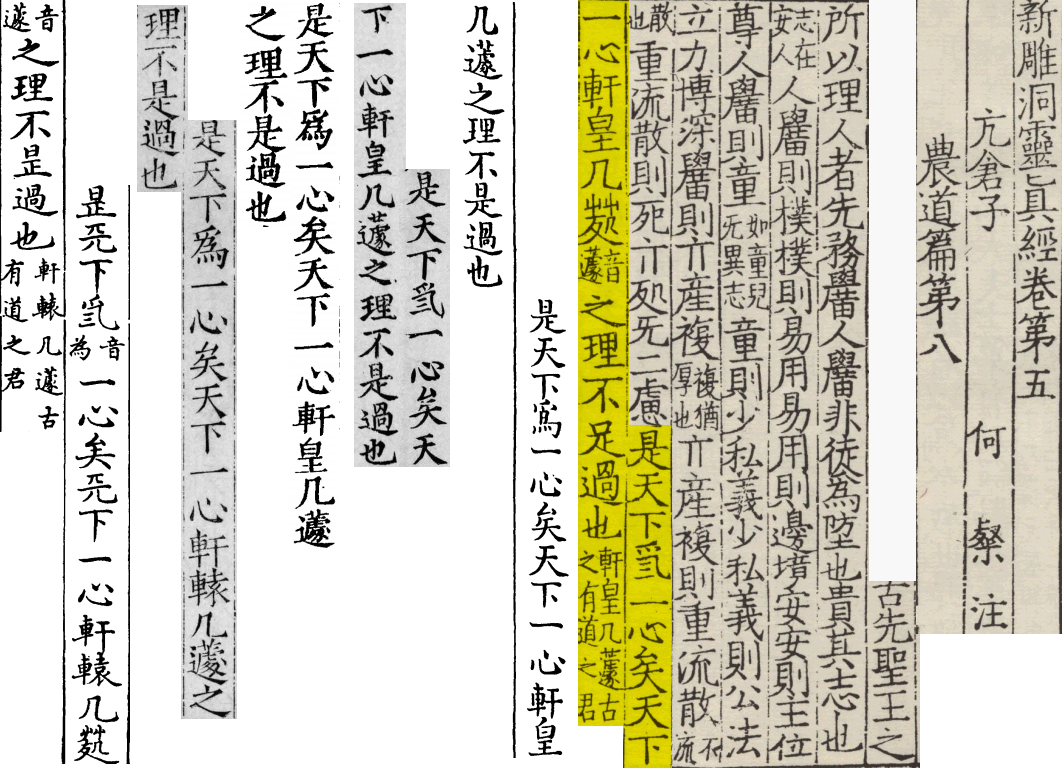 新雕洞靈真經卷第五
亢倉子 何粲注
農道篇第八
古先聖王之
所以理人者先務農人農非徒為埊也貴其志也
志在安人人農則樸樸則易用易用則邊境安安則主位
尊人農則童如童兒无異志童則少私義少私義則公法
立力博深農則丌産複複猶厚也丌産複則重流散流不
散也重流散則死丌処无二慮是天下爲一心矣天下
一心軒皇几音蘧之理不足過也軒皇几蘧古之有道之君
是天下爲一心矣天下一心軒皇
几蘧之理不是過也
是天下爲一心矣天
下一心軒皇几蘧之理不是過也
是天下爲一心矣天下一心軒皇几蘧
之理不是過也
是天下爲一心矣天下一心軒轅几蘧之
理不是過也
昰兲下音為一心矣兲下一心軒轅几
音蘧之理不昰過也軒轅几蘧古有道之君